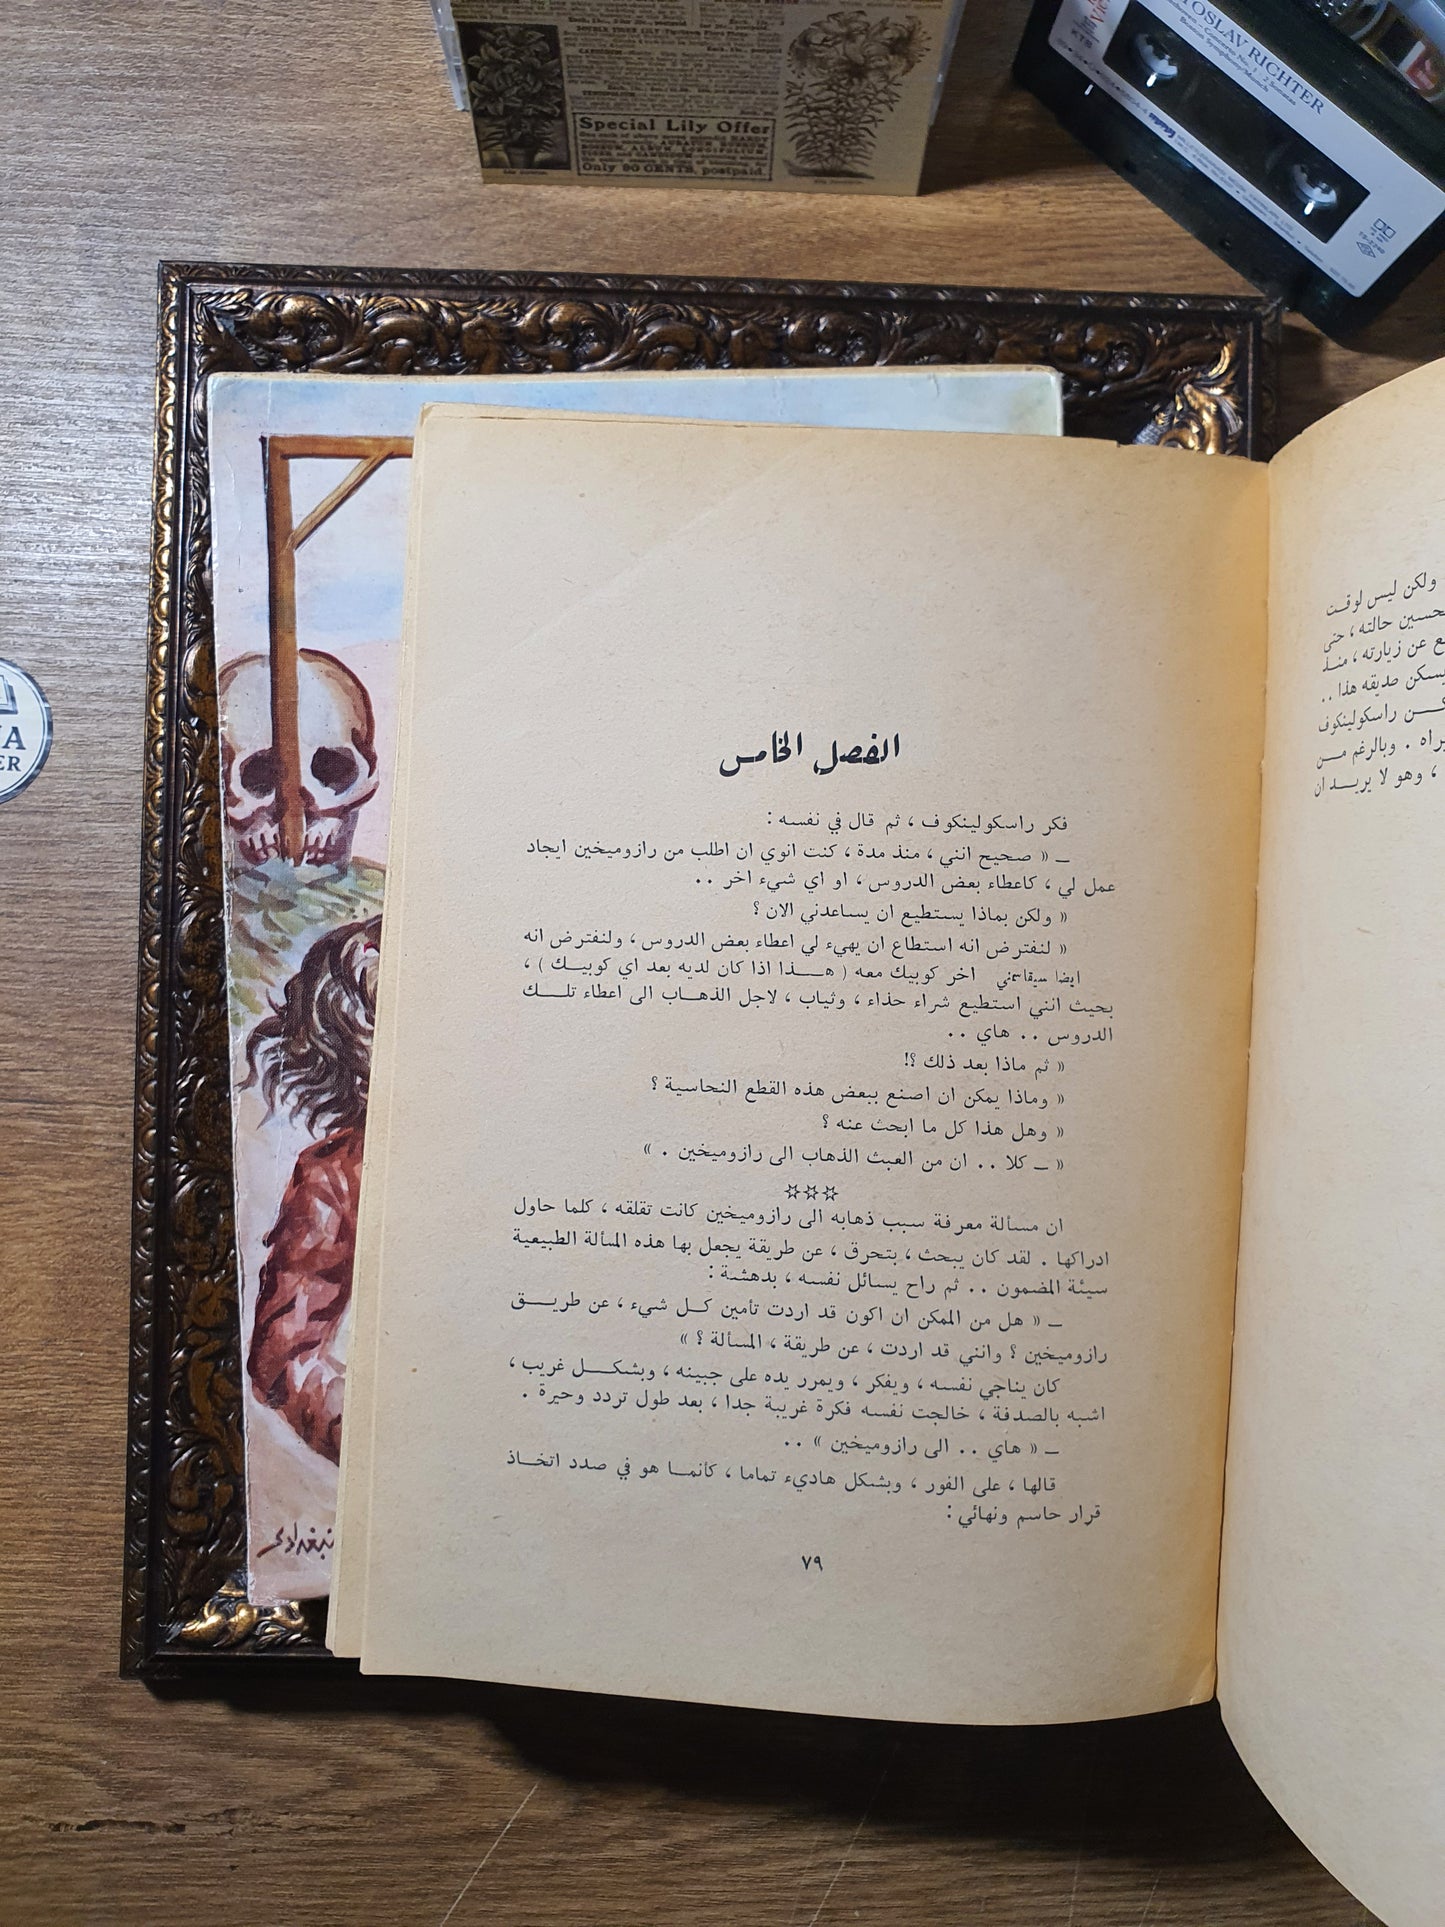 Special Lily Offer
Only 90 CENTS, postpaid.
TOSLAV RICHTER
Concerto No. 1 · 2 Sonatas
Boston Symphony/Munch
ولكن ليس لوقت
حالته ، حتى
عن زيارته ، منذ
يسكن صديقه هذا ..
راسكولينكوف
يراه . وبالرغم من
، وهو لا يريد ان
الفصل الخامس
فكر راسكولينكوف ، ثم قال في نفسه :
ـ « صحيح انني ، منذ مدة ، كنت انوي ان اطلب من رازوميخين ايجاد
عمل لي ، كاعطاء بعض الدروس ، او اي شيء اخر ..
« ولكن بماذا يستطيع ان يساعدني الان ؟
« لنفترض انه استطاع ان يهيء لي اعطاء بعض الدروس ، ولنفترض انه
ايضا سيقاسمني اخر كوبيك معه ( هـذا اذا كان لديه بعد اي كوبيك ) ،
بحيث انني استطيع شراء حذاء ، وثياب ، لاجل الذهاب الى اعطاء تلك
الدروس .. هاي ..
« ثم ماذا بعد ذلك ؟!
« وماذا يمكن ان اصنع ببعض هذه القطع النحاسية ؟
« وهل هذا كل ما ابحث عنه ؟
« ـ كلا .. ان من العبث الذهاب الى رازوميخين . »
☆☆☆
ان مسألة معرفة سبب ذهابه الى رازوميخين كانت تقلقه ، كلما حاول
ادراكها . لقد كان يبحث ، بتحرق ، عن طريقة يجعل بها هذه المسألة الطبيعية
سيئة المضمون .. ثم راح يسائل نفسه ، بدهشة :
ـ « هل من الممكن ان اكون قد اردت تأمين كل شيء ، عن طريق
رازوميخين ؟ وانني قد اردت ، عن طريقة ، المسألة ؟ »
كان يناجي نفسه ، ويفكر ، ويمرر يده على جبينه ، وبشكل غريب ،
اشبه بالصدفة ، خالجت نفسه فكرة غريبة جدا ، بعد طول تردد وحيرة .
ـ « هاي .. الى رازوميخين » ..
قالها ، على الفور ، وبشكل هاديء تماما ، كأنما هو في صدد اتخاذ
قرار حاسم ونهائي :
٧٩